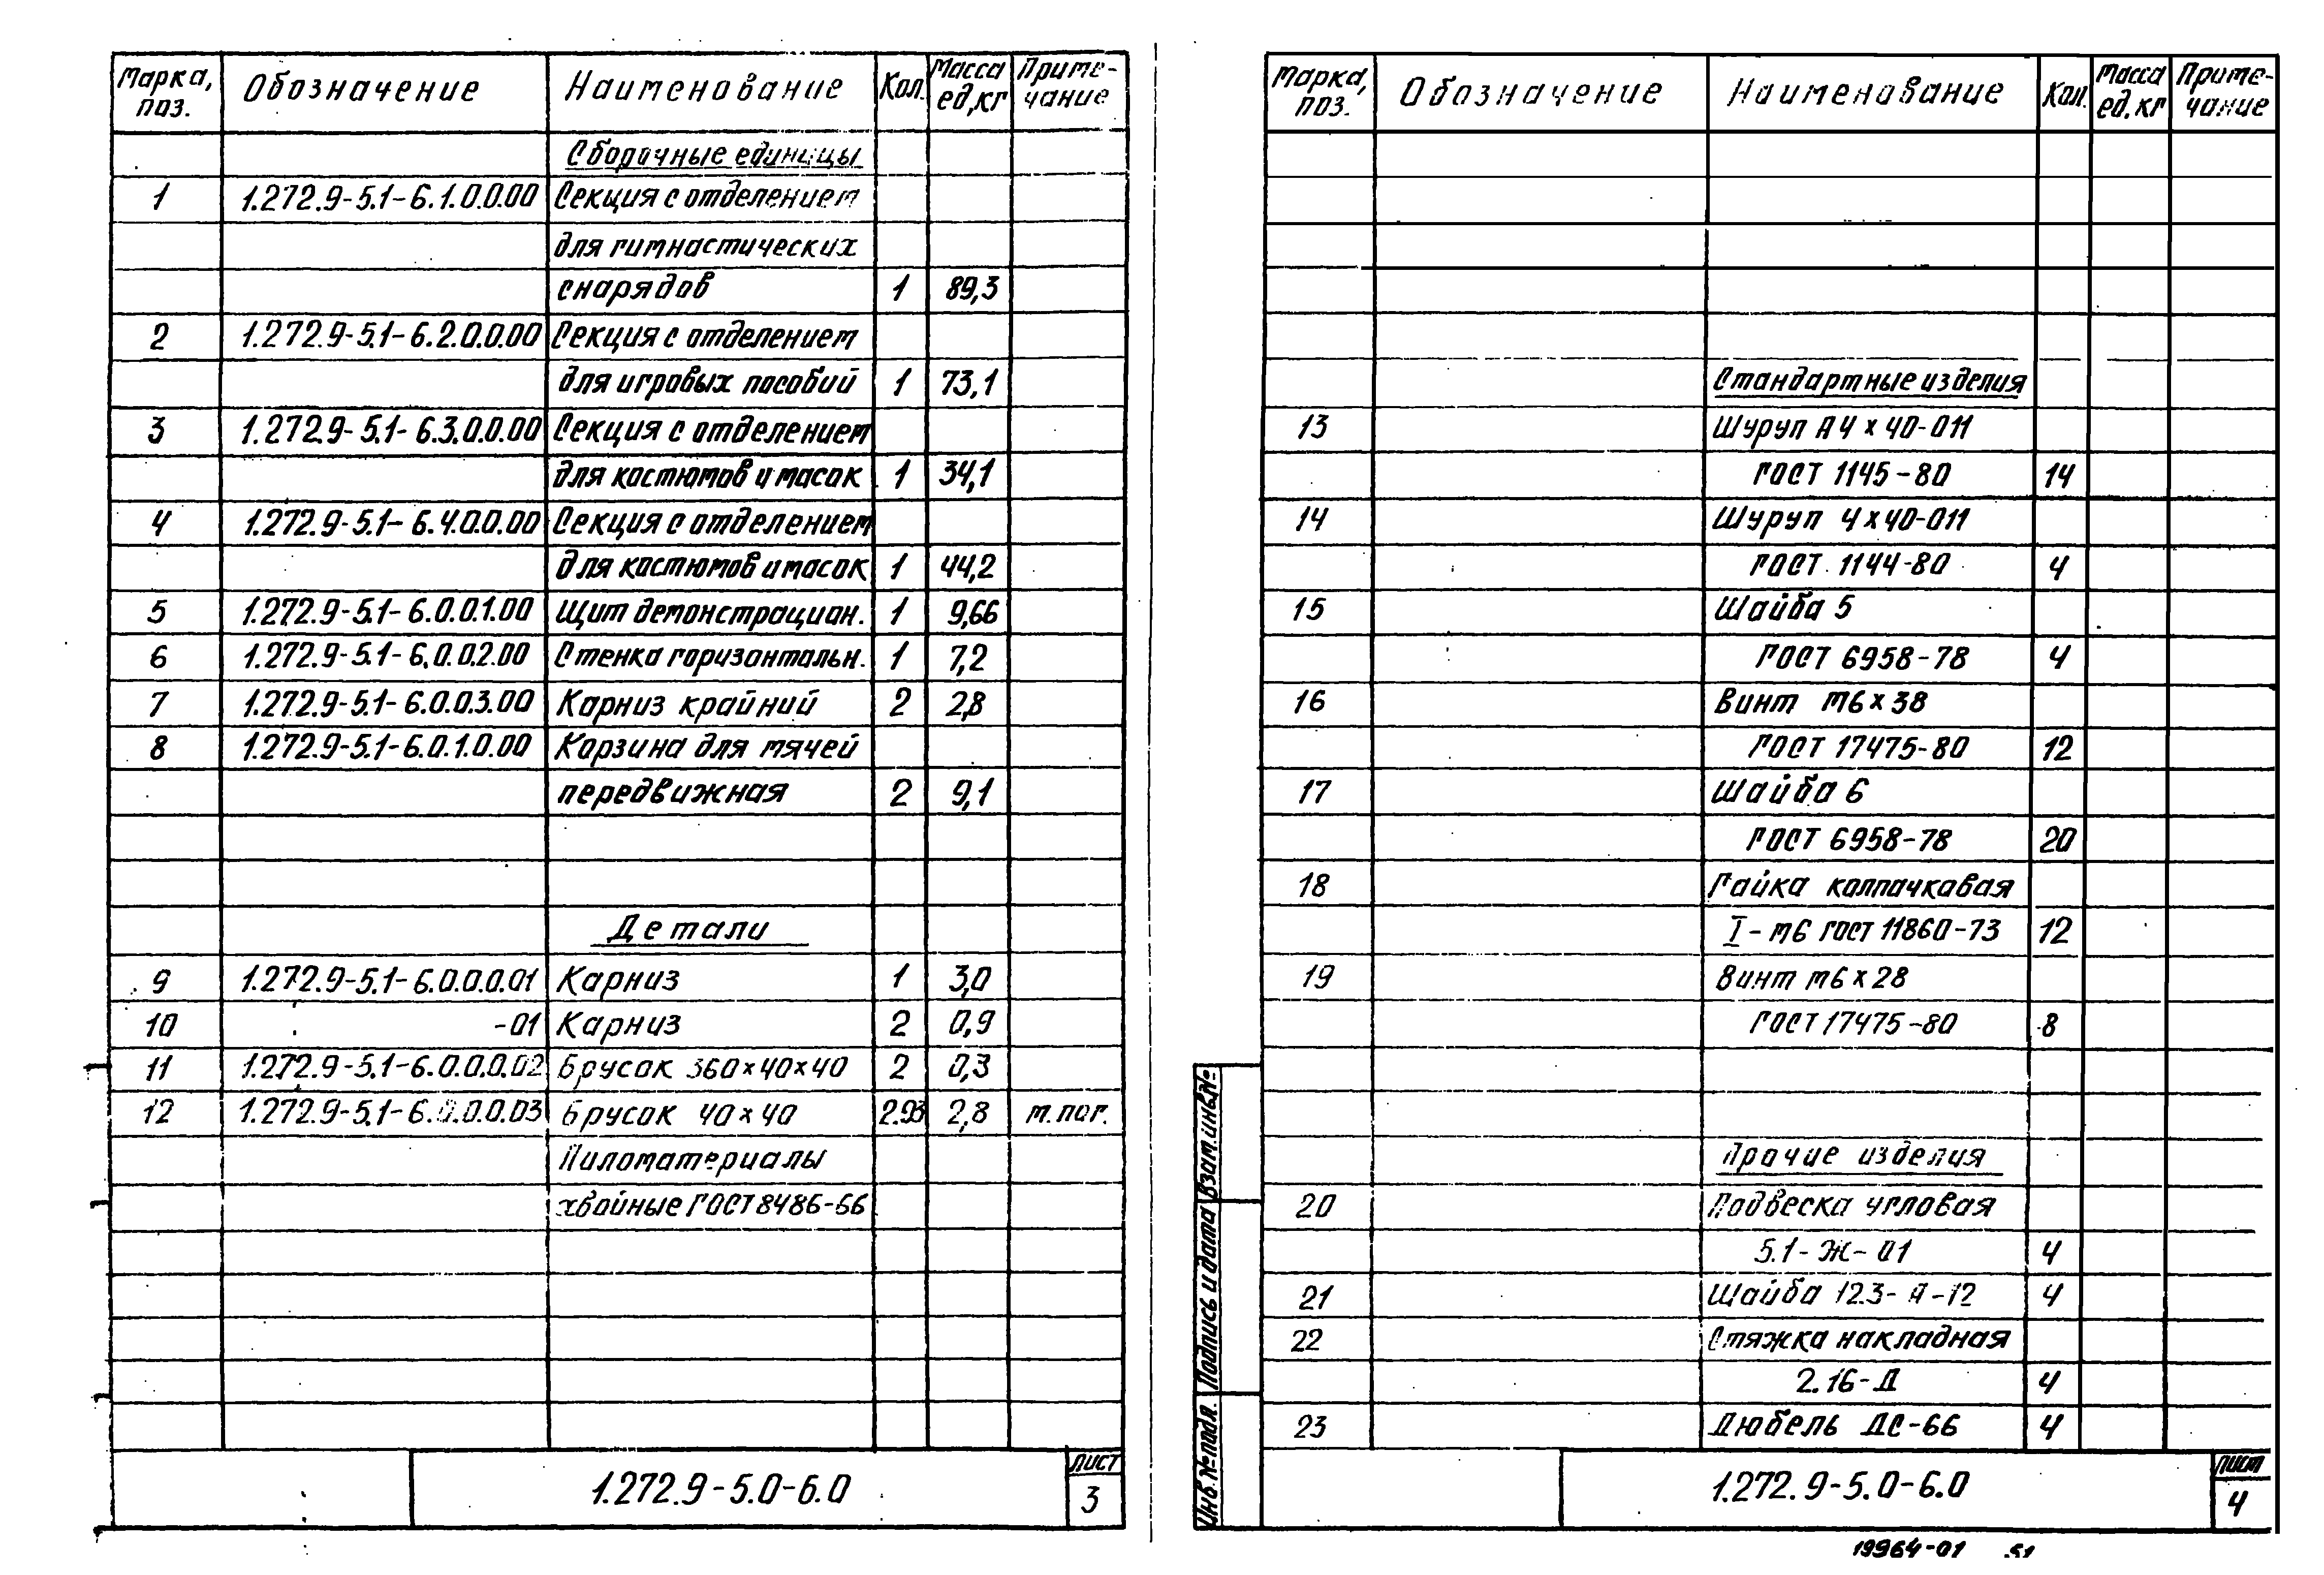 Марка, поз. Обозначение Наименование Кол. Масса ед,кг Приме-чание
Сборочные единицы
1 1.272.9-5.1-6.1.0.0.00 Секция с отделением
для гимнастических
снарядов 1 89,3
2 1.272.9-5.1-6.2.0.0.00 Секция с отделением
для игровых пособий 1 73,1
3 1.272.9-5.1-6.3.0.0.00 Секция с отделением
для костюмов и масок 1 34,1
4 1.272.9-5.1-6.4.0.0.00 Секция с отделением
для костюмов и масок 1 44,2
5 1.272.9-5.1-6.0.0.1.00 Щит демонстрацион. 1 9,66
6 1.272.9-5.1-6.0.0.2.00 Стенка горизонтальн. 1 7,2
7 1.272.9-5.1-6.0.0.3.00 Карниз крайний 2 2,8
8 1.272.9-5.1-6.0.1.0.00 Корзина для мячей
передвижная 2 9,1
Детали
9 1.272.9-5.1-6.0.0.0.01 Карниз 1 3,0
10 -01 Карниз 2 0,9
11 1.272.9-5.1-6.0.0.0.02 Брусок 360×40×40 2 0,3
12 1.272.9-5.1-6.0.0.0.03 Брусок 40×40 2.93 2,8 м.пог.
Пиломатериалы
хвойные ГОСТ 8486-66
1.272.9-5.0-6.0
Лист
3
Марка, поз. Обозначение Наименование Кол. Масса ед.кг Приме-чание
Стандартные изделия
13 Шуруп А4×40-011
ГОСТ 1145-80 14
14 Шуруп 4×40-011
ГОСТ 1144-80 4
15 Шайба 5
ГОСТ 6958-78 4
16 Винт М6×38
ГОСТ 17475-80 12
17 Шайба 6
ГОСТ 6958-78 20
18 Гайка колпачковая
I-М6 ГОСТ 11860-73 12
19 Винт М6×28
ГОСТ 17475-80 8
Прочие изделия
20 Подвеска угловая
5.1-Ж-01 4
21 Шайба 12.3-А-12 4
22 Стяжка накладная
2.16-Д 4
23 Дюбель ДС-66 4
Взам.инв.№
Подпись и дата
Инв.№ подл.
1.272.9-5.0-6.0
Лист
4
19964-01 51